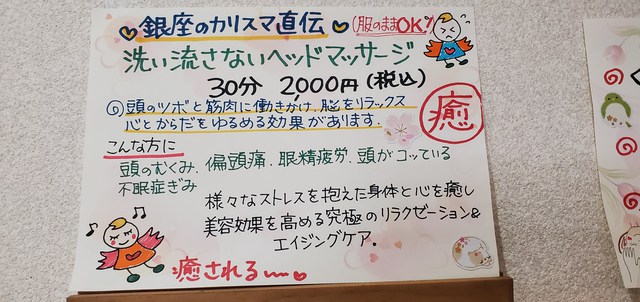 銀座のカリスマ直伝
(服のままOK!)
洗い流さないヘッドマッサージ
30分 2,000円(税込)
頭のツボと筋肉に働きかけ、脳をリラックス
心とからだをゆるめる効果があります。
癒
こんな方に
頭のむくみ、偏頭痛、眼精疲労、頭がコッている
不眠症ぎみ
様々なストレスを抱えた身体と心を癒し
美容効果を高める究極のリラクゼーション&
エイジングケア.
癒される〜